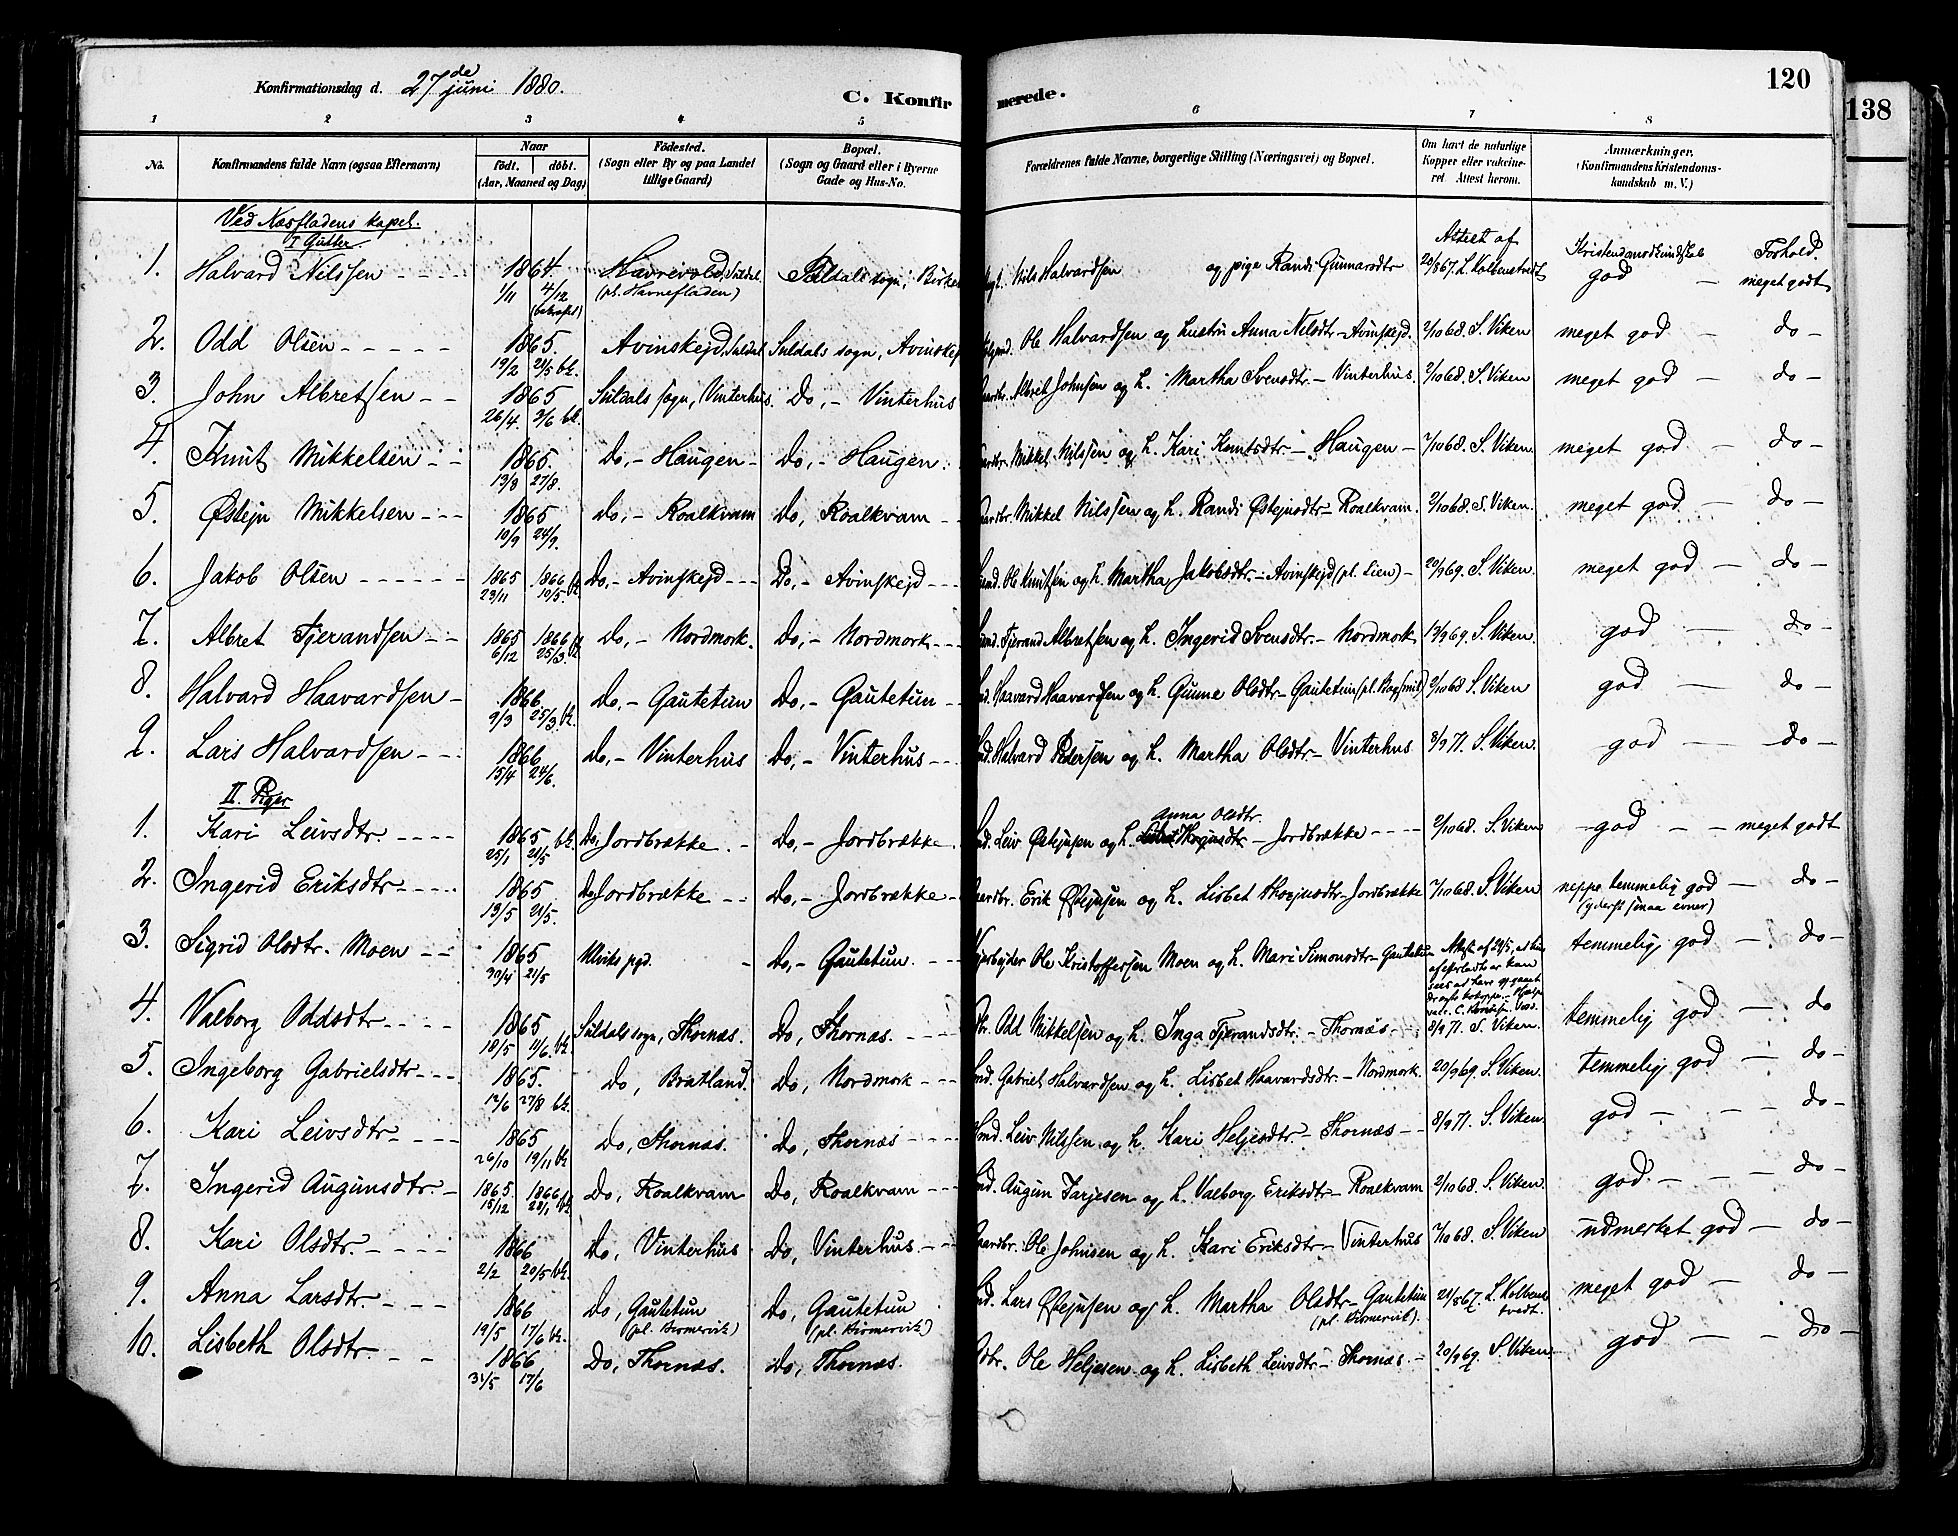 Konfirmationsdag d. 27de juni 1880.
C. Konfirmerede.
120
138
1 2 3 4 5 6 7 8
No. Konfirmandens fulde Navn (ogsaa Efternavn) Naar født. døbt. (Aar, Maaned og Dag) Fødested. (Sogn eller By og paa Landet tillige Gaard) Bopæl. (Sogn og Gaard eller i Byerne Gade og Hus-No. Forældrenes fulde Navne, borgerlige Stilling (Næringsvei) og Bopæl. Om havt de naturlige Kopper eller vaccineret Attest herom. Anmærkninger. (Konfirmandens Kristendomskundskab m. V.)
Ved Næsfladens kapel.
I Gutter.
Attest af Kristendomskundskab Forhold.
1. Halvard Nilssen 1864. 1/11 4/12 Havrevold, Suldal. (pl. Havnefladen) Suldals sogn, Nils Halvardsen og pige Randi Gunnarsdtr 20/867. L. Kolbenstvedt god meget godt
2. Odd Olsen 1865. 19/2 21/5 bk. Avinskejd, Suldal Suldals sogn, Avinskejd Ole Halvardsen og hustru Anna Nilsdtr - Avinskejd. 2/1068. S. Viken meget god - do -
3. John Albretsen 1865 26/4. 3/6 bk. Suldals sogn, Vinterhus. Do, - Vinterhus Albret Johnsen og h. Martha Svensdtr - Vinterhus. 2/1068. S. Viken meget god - do -
4. Knut Mikkelsen 1865. 13/8 27/8. do, - Haugen - do, - Haugen. Mikkel Nilssen og h. Kari Knutsdtr - Haugen - 7/1068. S. Viken meget god - do -
5. Østejn Mikkelsen 1865 10/9 24/9. do, - Roalkvam do, Roalkvam Mikkel Nilssen og h. Randi Østejnsdtr - Roalkvam. 2/1068. S. Viken. meget god - do -
6. Jakob Olsen 1865 23/11 1866 10/5. bk Do, - Avinskejd Do, - Avinskejd Ole Knutsen og h. Martha Jakobsdtr - Avinskejd (pl. Lien) - 20/969. S. Viken. meget god - do -
7. Albret Tjerandsen 1865 6/12 1866 25/3. bk do, - Nordmork. Do, - Nordmork Tjerand Albretsen og h. Ingerid Svensdtr. - Nordmork 13/969. S. Viken. god - do -
8. Halvard Haavardsen 1866 9/3 25/3 bk. do, - Gautetun Do, - Gautetun Haavard Haavardsen og h. Gunne Olsdtr - Gautetun 2/1068 S. Viken god - do -
9. Lars Halvardsen 1866 15/4 24/6. do, - Vinterhus Do, - Vinterhus Halvard Pedersen og h. Martha Olsdtr - Vinterhus 8/971. S. Viken. god - do -
II. Piger
1. Kari Leivsdtr 1865 25/1 21/5 bk. Do, Jordbrække. Do, - Jordbrække Leiv Østejnsen og h. Anna Olsdtr - Jordbrække 2/1068. S. Viken god - meget godt
2. Ingerid Eriksdtr 1865 13/5 21/5. do Jordbrække Do, - Jordbrække Erik Østejnsen og h. Lisbet Thorjusdtr - Jordbrække 7/1068. S. Viken neppe temmelig god - do - (yderst smaa evner)
3. Sigrid Olsdtr. Moen 1865 30/4 21/5 Ulviks pgd. Do, - Gautetun. Ole Kristoffersen Moen og h. Mari Simonsdtr - Gautetun temmelig god - do -
4. Valborg Oddsdtr 1865 18/5 11/6. bk. Suldals sogn, Thornæs. Do, Thornæs. Odd Mikkelsen og h. Inga Tjerandsdtr. - Thornæs - 8/971. S. Viken. temmelig god - do
5. Ingeborg Gabrielsdtr 1865. 12/6 27/8 bk. do, Bratland. Do, Nordmork Gabriel Halvardsen og h. Lisbet Haavardsdtr. - Nordmork. 20/969. S. Viken. temmelig god - do -
6. Kari Leivsdtr 1865 26/10 19/11 bk Do, Thornæs. Do, Thornæs Leiv Nilssen og h. Kari Heljesdtr. - Thornæs - 8/971. S. Viken. god - do -
7. Ingerid Augunsdtr. 1865. 15/12 1866 28/1 bk do, Roalkvam Do, Roalkvam Augun Tarjesen og h. Valborg Eriksdtr - Roalkvam 2/1068. S. Viken. god - do -
8. Kari Olsdtr. 1866 2/2 20/5 bk. do, Vinterhus Do, Vinterhus. Ole Johnsen og h. Kari Eriksdtr - Vinterhus 7/1068. S. Viken. udmerket god - do -
9. Anna Larsdtr. 1866 19/5 17/6 bk. Do, Gautetun Do, Gautetun Lars Østejnsen og h. Martha Olsdtr - Gautetun 21/867. L. Kolbenstvedt. meget god - do -
10. Lisbeth Olsdtr. 1866 31/5 17/6 Do, Thornæs. do, Thornæs. Ole Heljesen og h. Lisbeth Leivsdtr - Thornæs. 20/969. S. Viken god - do -